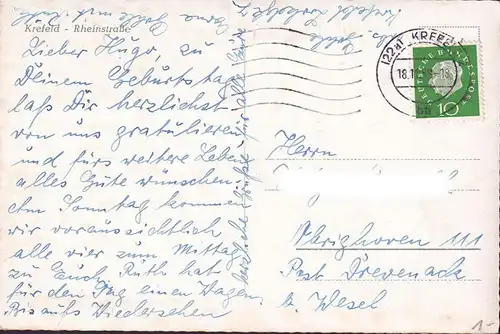 Krefeld - Rheinstraße
Lieber Hugo, zu
Deinem Geburtstag
laß Dir herzlichst
von uns gratulieren
und fürs weitere Leben
alles Gute wünschen
Am Sonntag kommen
wir voraussichtlich
alle vier zum Mittag
zu Euch, Ruth hat
für den Tag einen Wagen
Bis aufs Wiedersehen
herzliche Grüße für alle
(22a) KREFELD
18.1
DEUTSCHE BUNDESPOST
10
Herrn
Obrighoven 111
Post Drevenack
b. Wesel